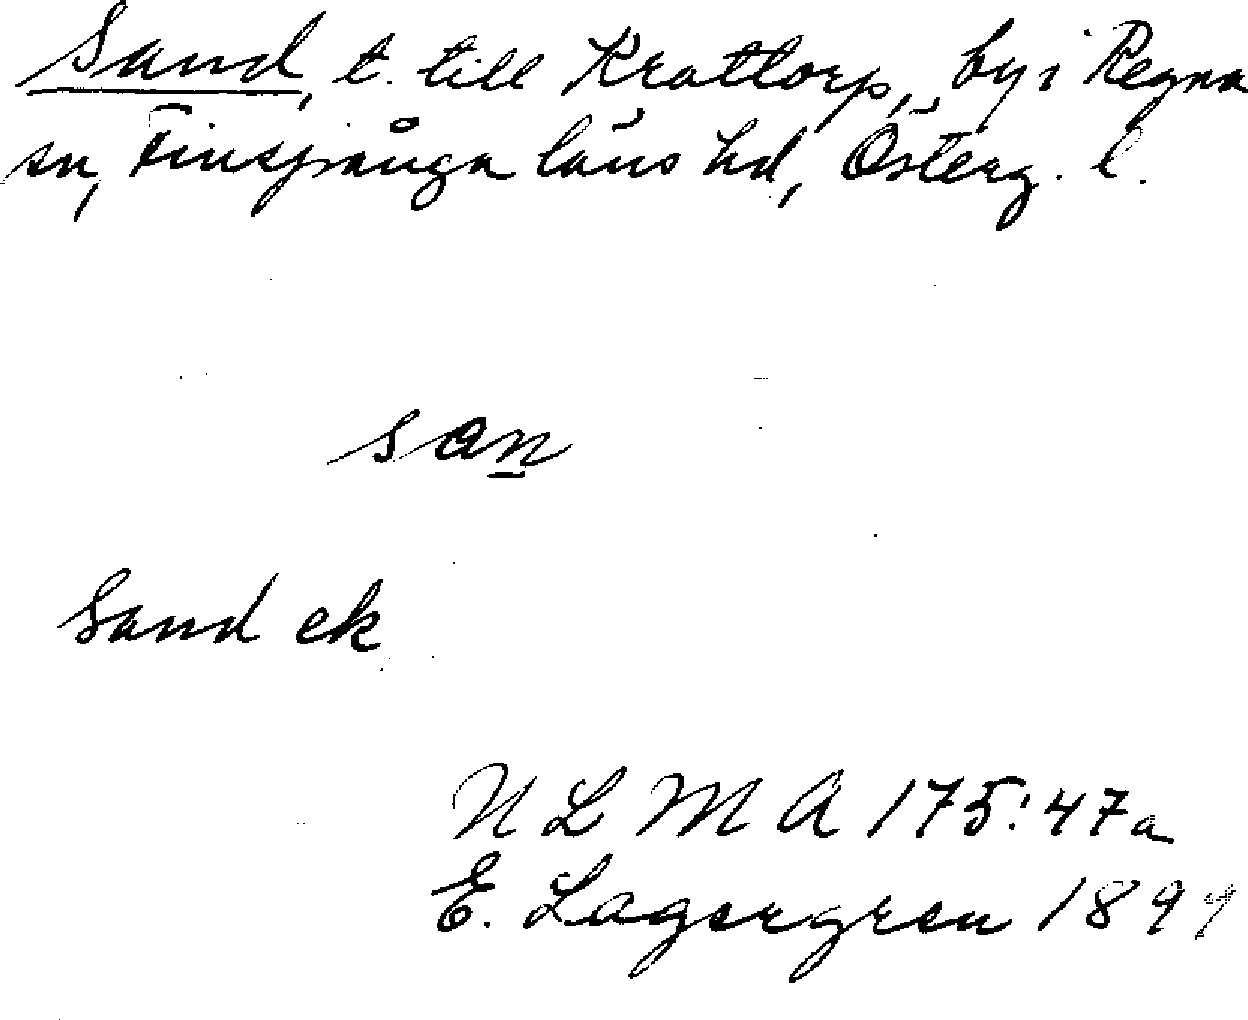 Sand, t. till Krattorp, by i Regna
sn, Finspånga läns hd, Österg. l.
san
Sand ek
ULMA 175:47a
E. Lagergren 1899